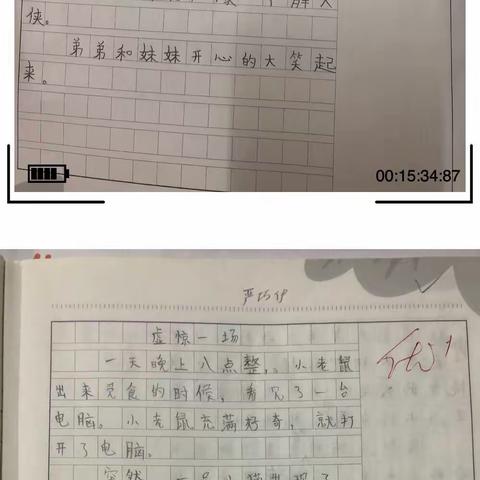 侠。
弟弟和妹妹开心的大笑起
来。
00:15:34:87
虚惊一场
一天晚上八点整，小老鼠
出来觅食的时候，看见了一台
电脑。小老鼠充满好奇，就打
开了电脑。
突然，一只小猫出现了